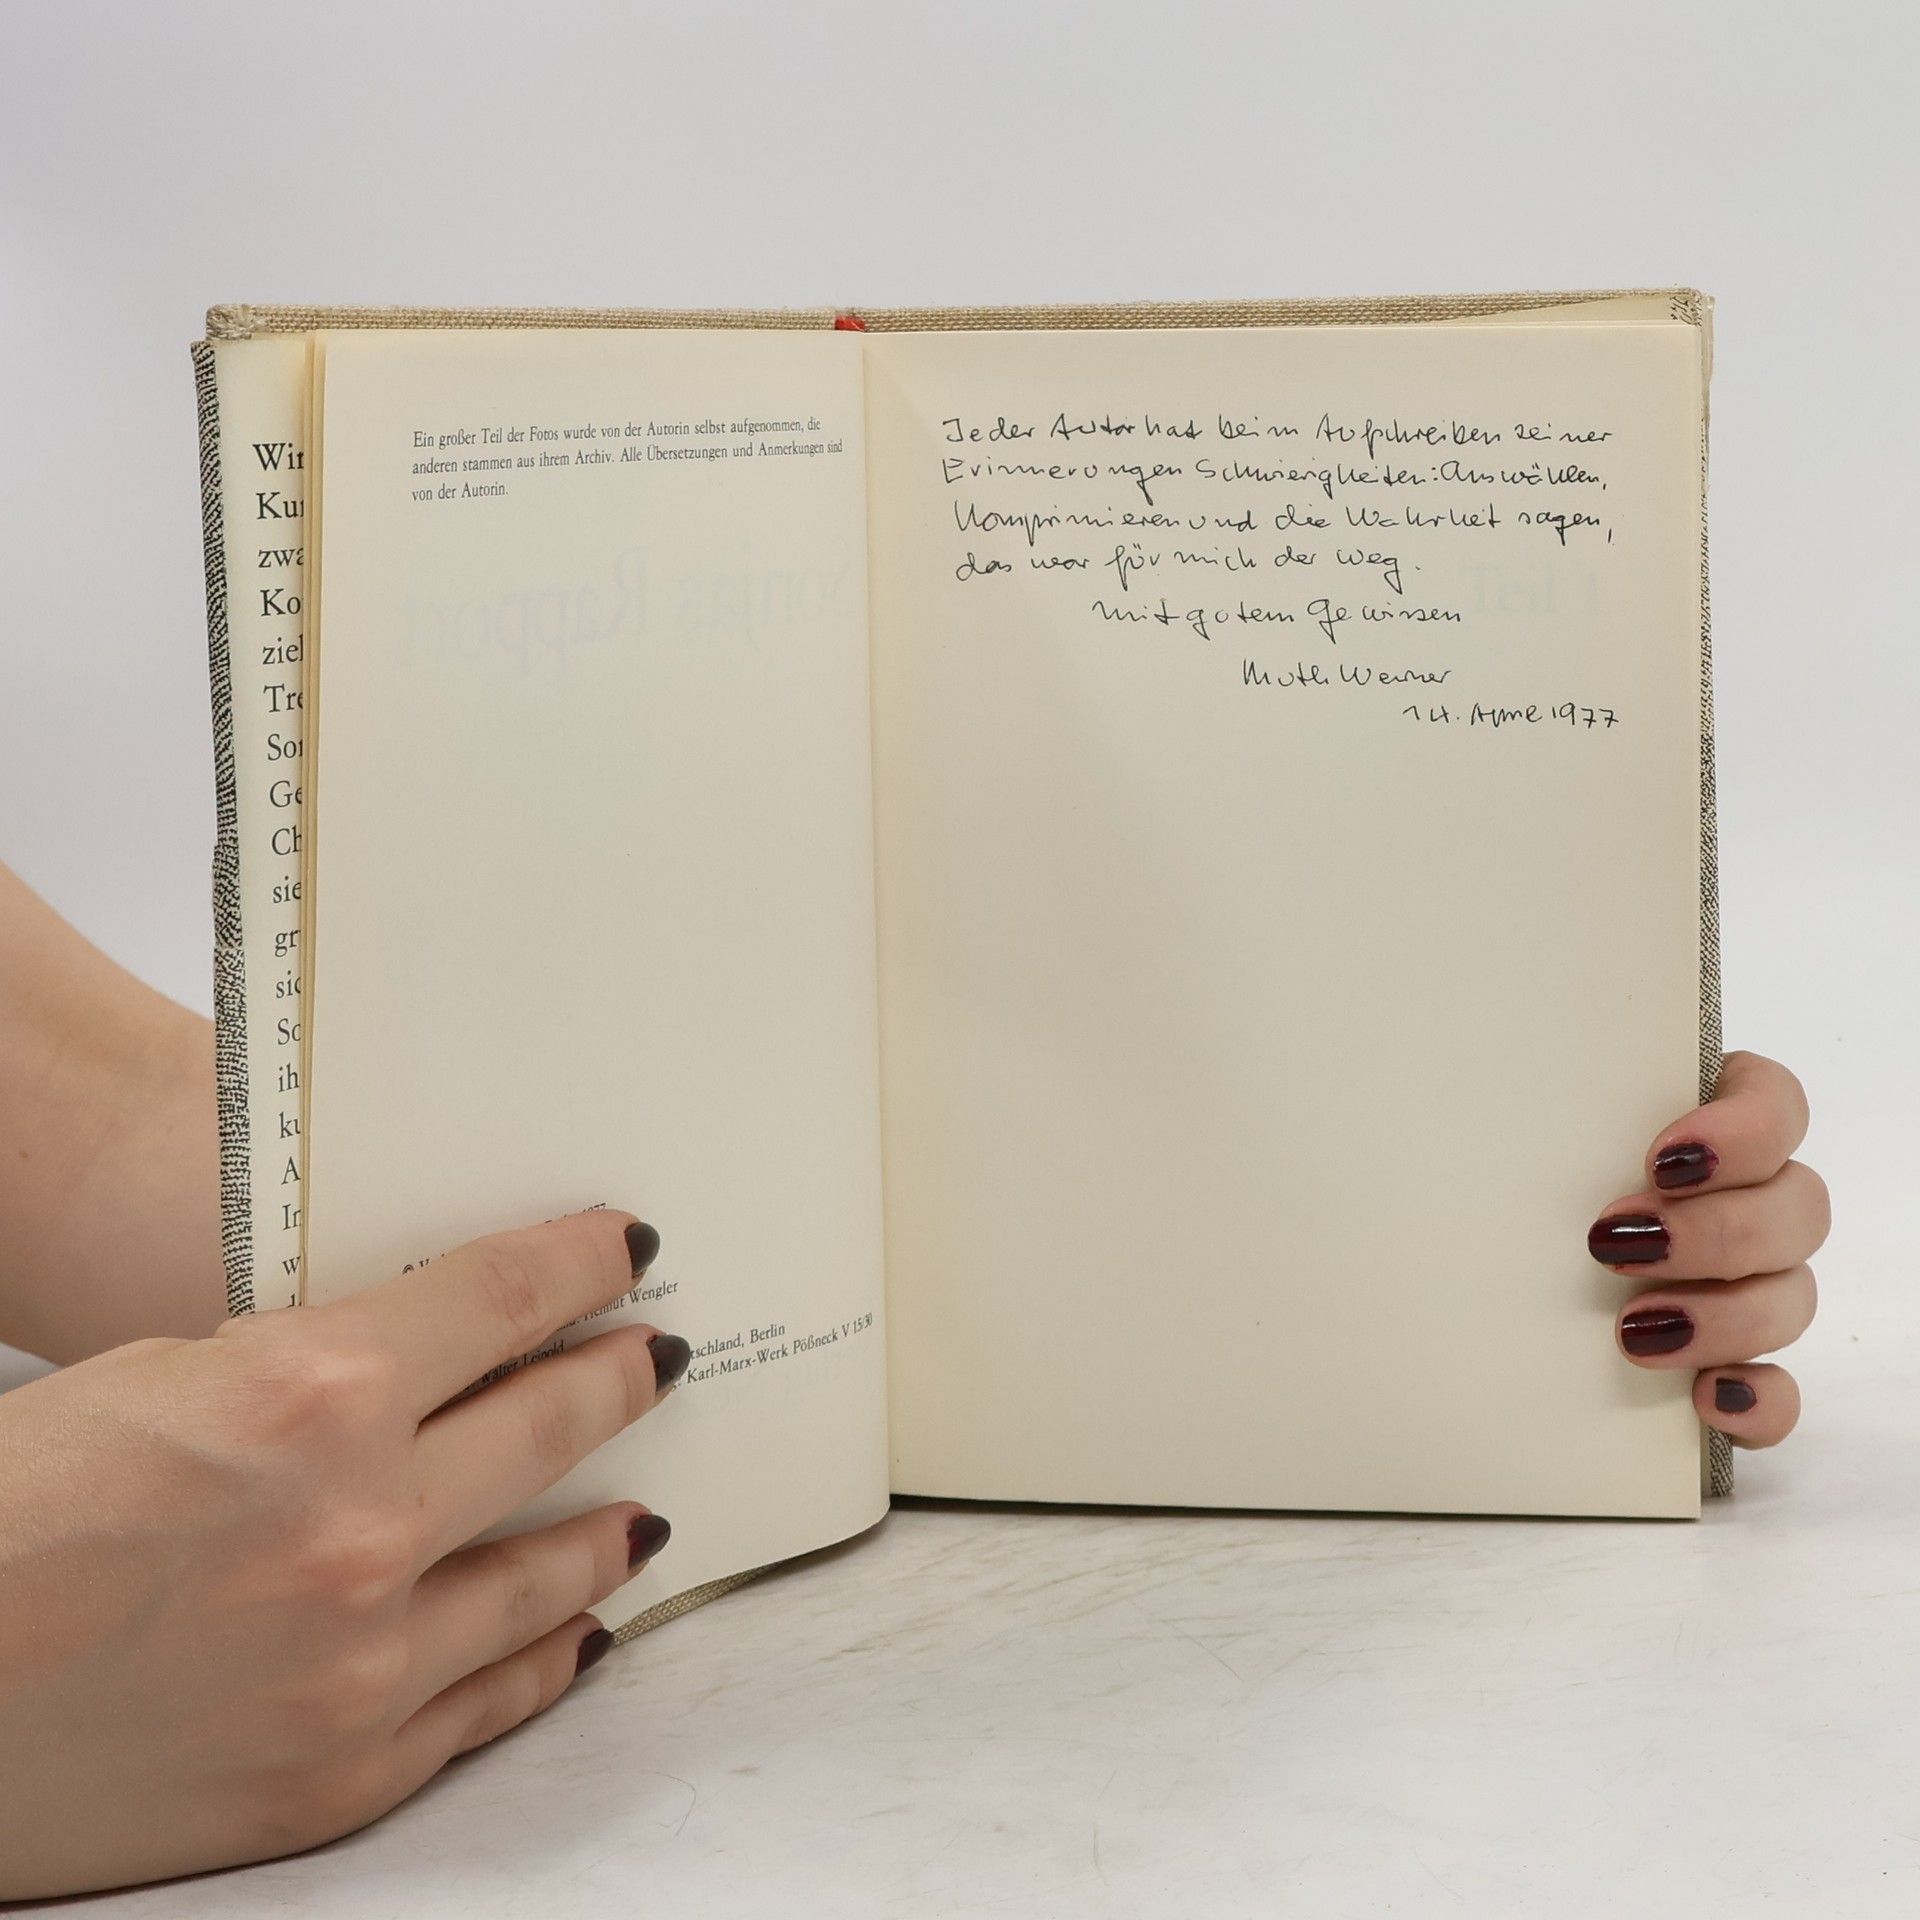 Wir
Ku
zwa
Ko
ziel
Tre
So
Ge
Ch
sie
gr
sic
So
ih
ku
A
In
w
Ein großer Teil der Fotos wurde von der Autorin selbst aufgenommen, die
anderen stammen aus ihrem Archiv. Alle Übersetzungen und Anmerkungen sind
von der Autorin.
1977
©
Helmut Wengler
Walter Leipold
tschland, Berlin
Karl-Marx-Werk Pößneck V 15/30
Jeder Autor hat beim Aufschreiben seiner
Erinnerungen Schwierigkeiten: Auswählen,
Komprimieren und die Wahrheit sagen,
das war für mich der Weg.
Mit gutem Gewissen
Ruth Werner
14. April 1977